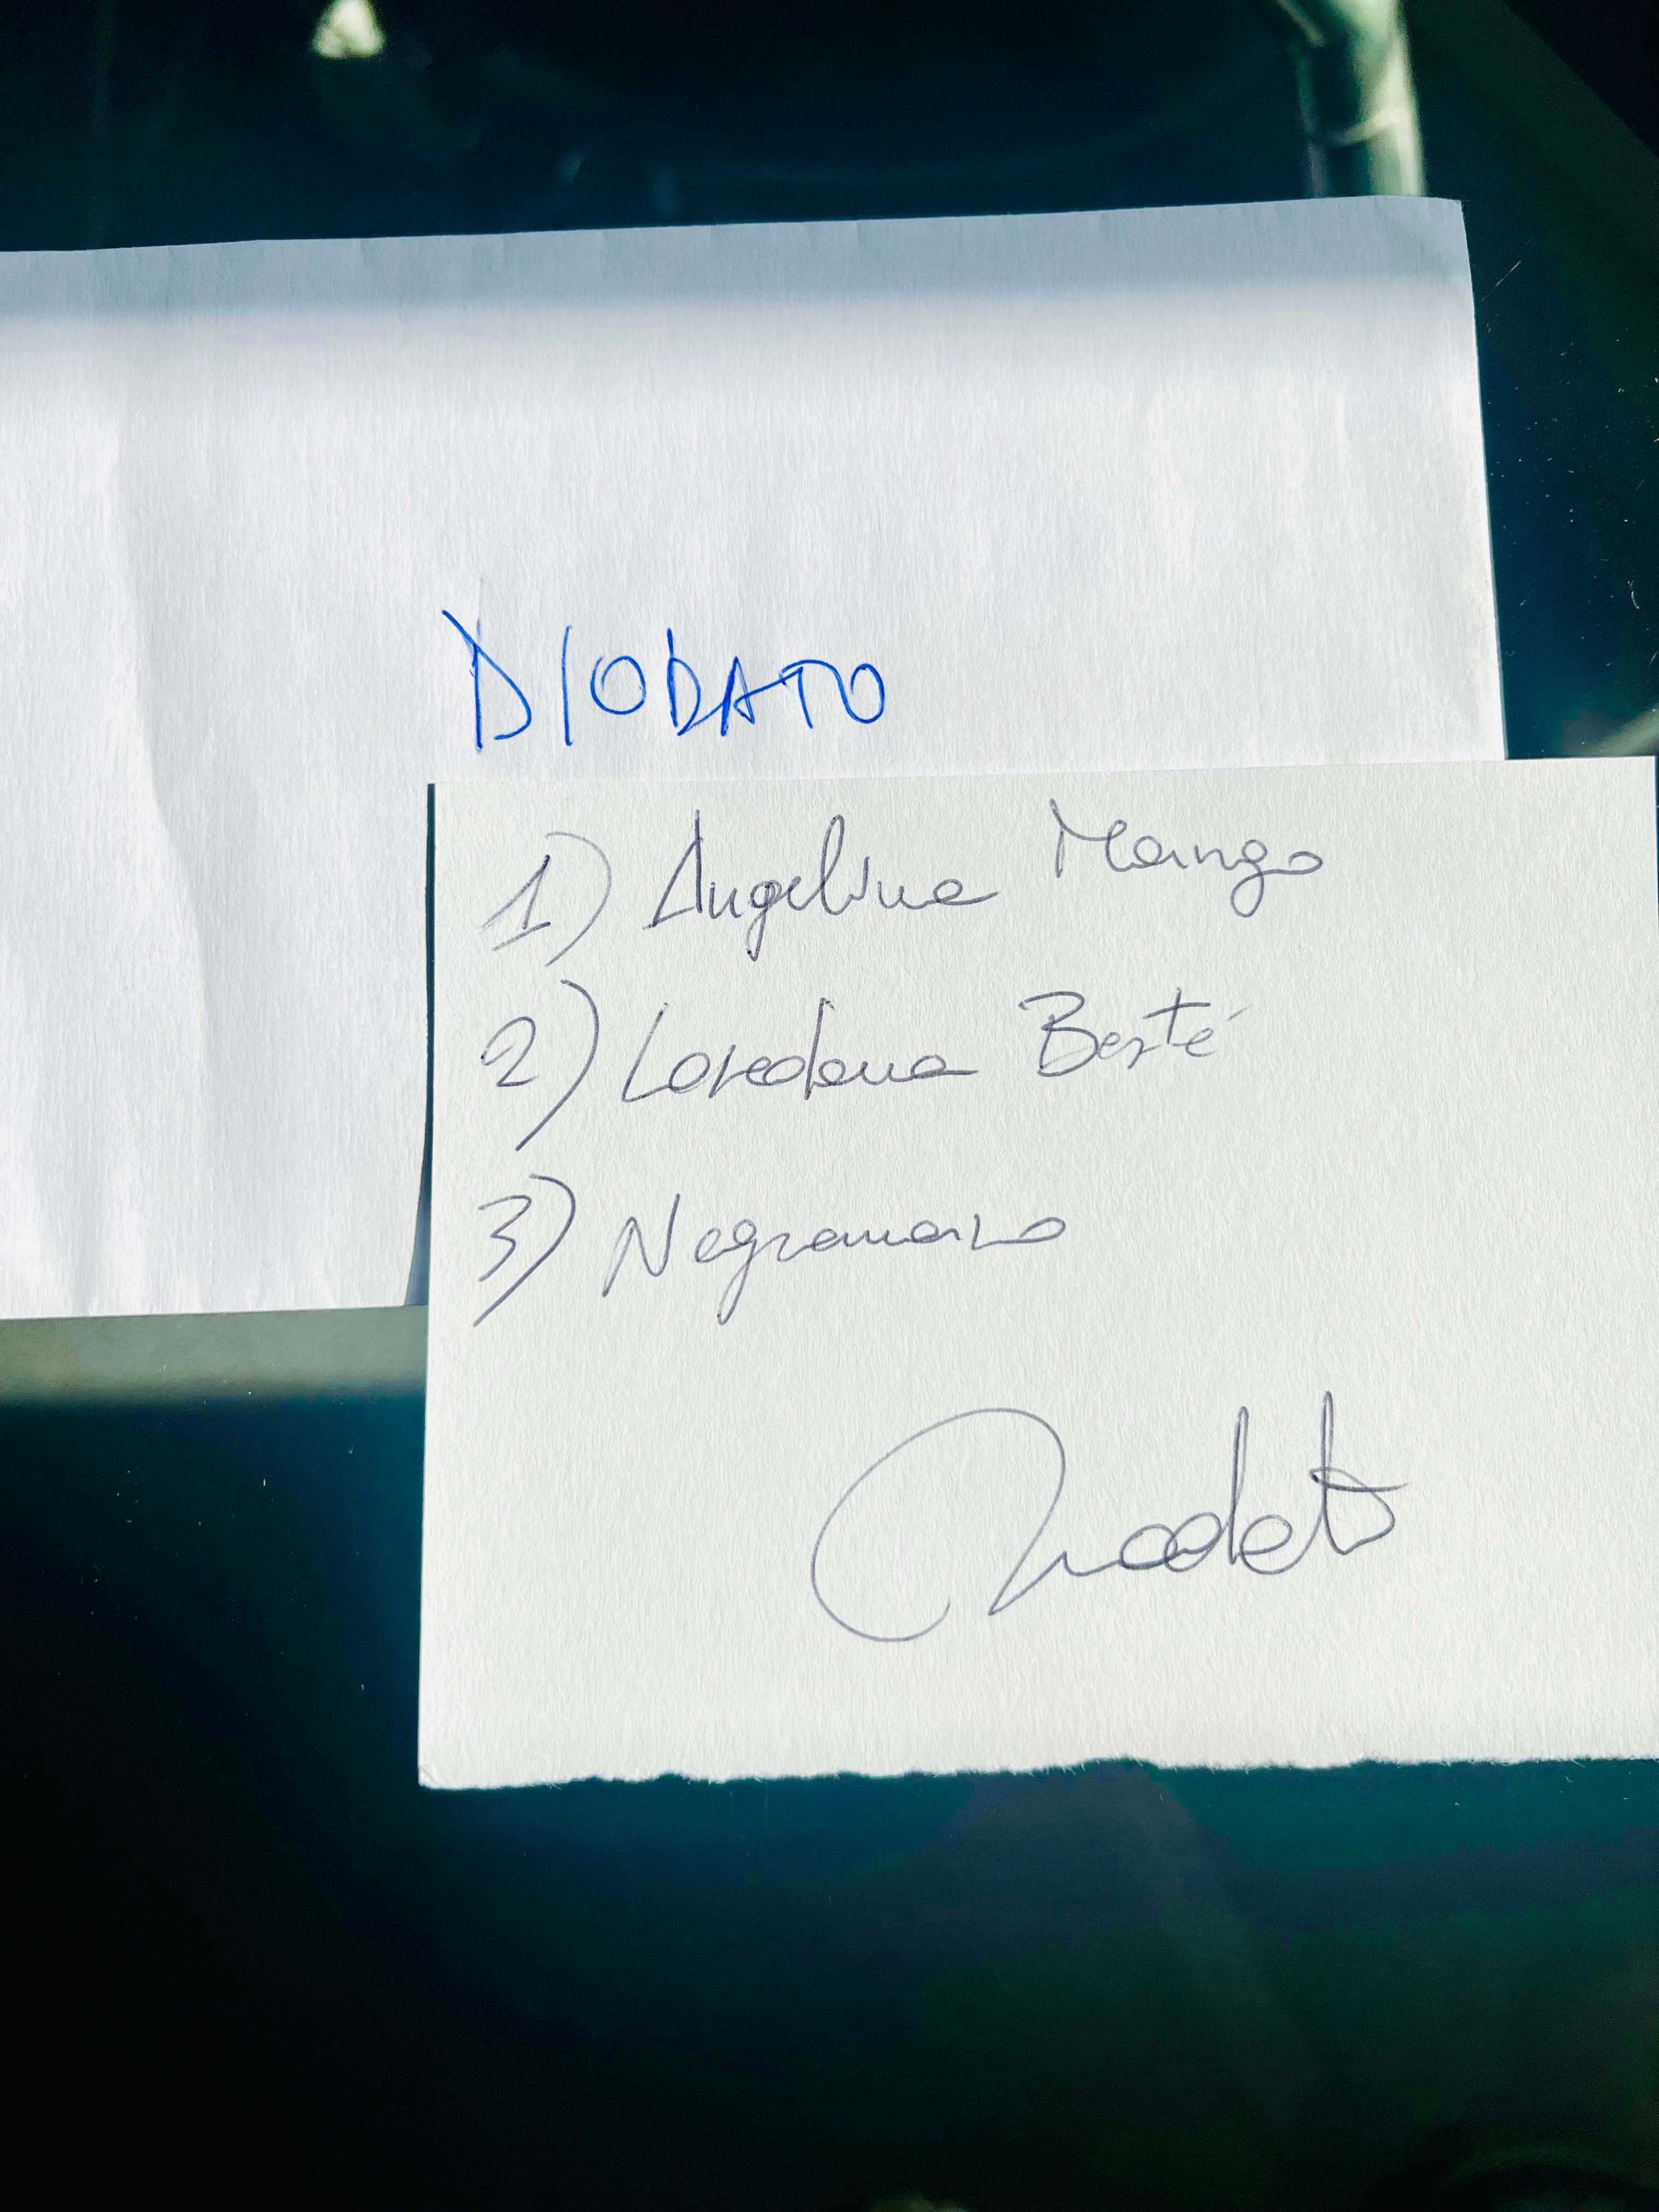 DIODATO
1) Angelina Mango
2) Loredana Berté
3) Negramaro
Diodato